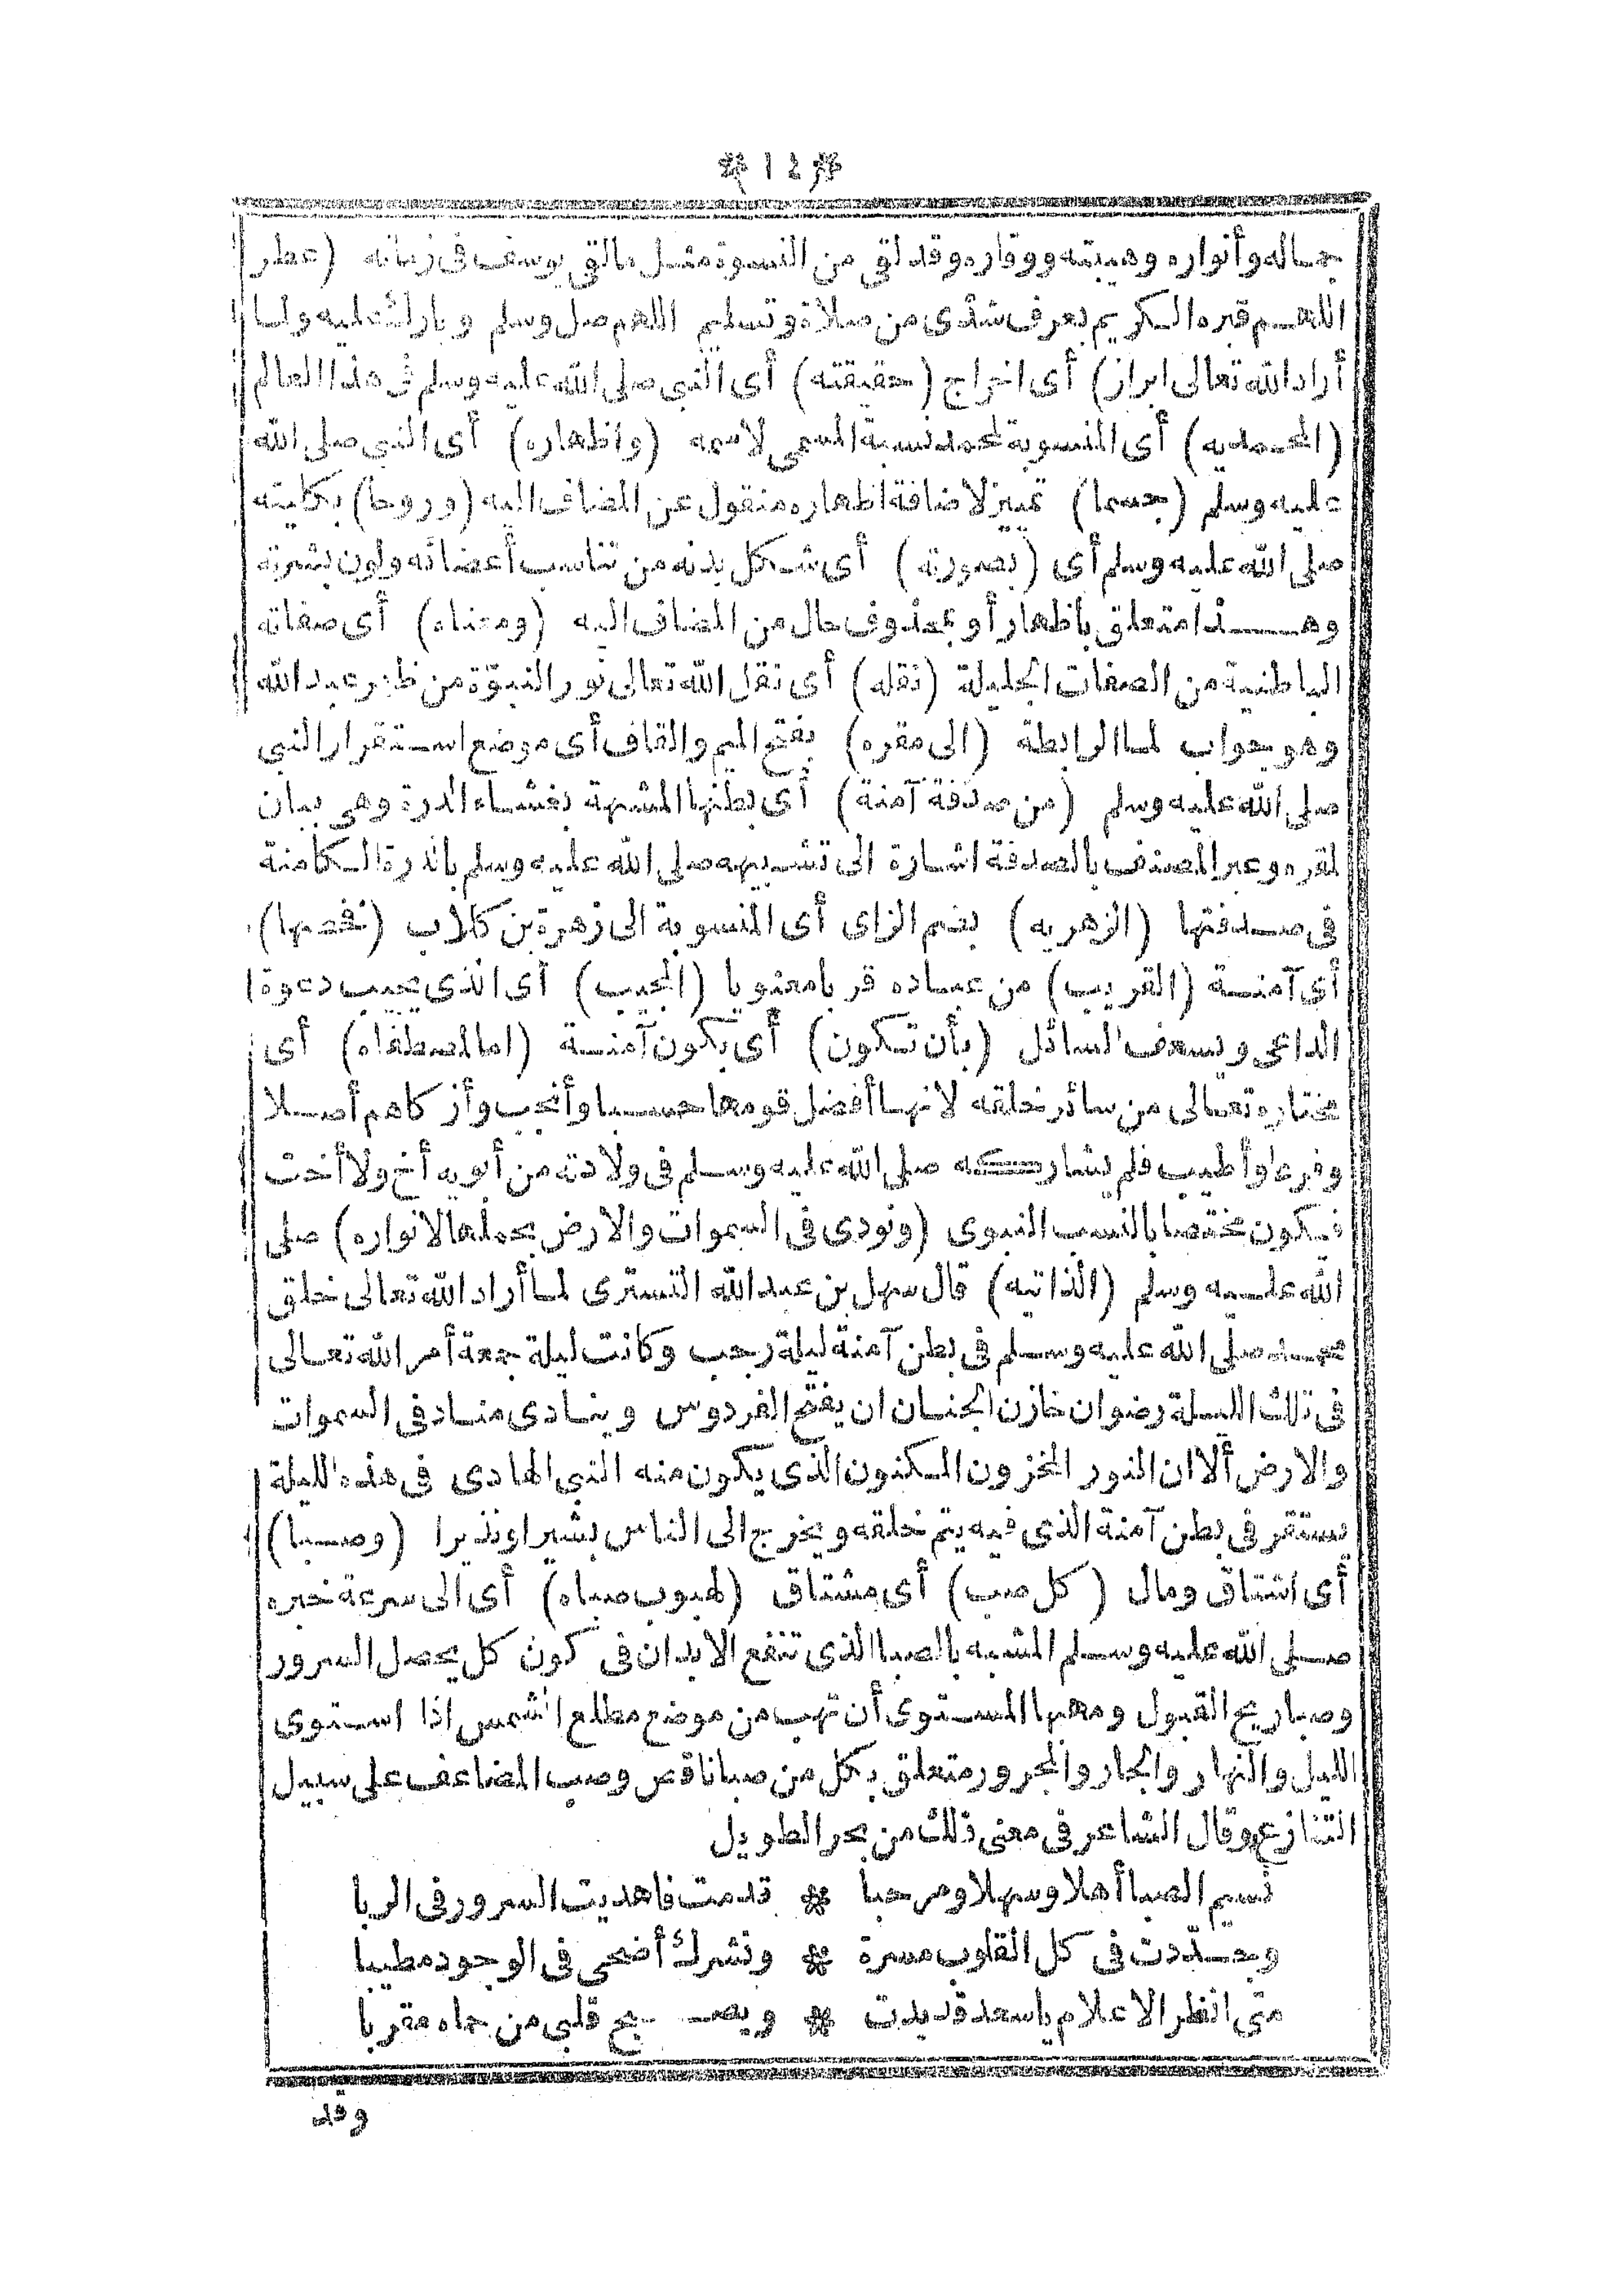 ﴿١٤﴾
جماله وأنواره وهيبته ووقاره وقد لقى من النسوة مثل مالقى يوسف فى زمانه (عطر
اللهم قبره الكريم بعرف شذى من صلاة وتسليم اللهم صل وسلم وبارك عليه ولما
أراد الله تعالى ابراز) أى اخراج (حقيقته) أى النبى صلى الله عليه وسلم فى هذا العالم
(المحمديه) أى المنسوبة لمحمد نسبة المسمى لاسمه (واظهاره) أى النبى صلى الله
عليه وسلم (جسما) تمييز لاضافة اظهاره منقول عن المضاف اليه (وروحا) بكليته
صلى الله عليه وسلم أى (بصورته) أى شكل بدنه من تناسب أعضائه ولون بشرته
وهذا متعلق باظهار أو بمحذوف حال من المضاف اليه (ومعناه) أى صفاته
الباطنية من الصفات الجليلة (نقله) أى نقل الله تعالى نور النبوّة من ظهر عبد الله
وهو جواب لما الرابطة (الى مقره) بفتح الميم والقاف أى موضع استقرار النبى
صلى الله عليه وسلم (من صدفة آمنة) أى بطنها المشبهة بغشاء الدرة وهى بيان
لمقره وعبر المصنف بالصدفة اشارة الى تشبيهه صلى الله عليه وسلم بالدرة الكامنة
فى صدفتها (الزهريه) بضم الزاى أى المنسوبة الى زهرة بن كلاب (خصها)
أى آمنة (القريب) من عباده قربا معنويا (المجيب) أى الذى يجيب دعوة
الداعى ويسعف السائل (بأن تكون) أى بكون آمنة (اما لمصطفاه) أى
مختاره تعالى من سائر خلقه لانها أفضل قومها حسبا وأنجب وأزكاهم أصلا
وفرعا وأطيب فلم يشاركه صلى الله عليه وسلم فى ولادته من أبويه أخ ولا أخت
فيكون مختصا بالنسب النبوى (ونودى فى السموات والارض بحملها لانواره) صلى
الله عليه وسلم (الذاتيه) قال سهل بن عبد الله التسترى لما أراد الله تعالى خلق
محمد صلى الله عليه وسلم فى بطن آمنة ليلة رجب وكانت ليلة جمعة أمر الله تعالى
فى تلك الليلة رضوان خازن الجنان ان يفتح الفردوس وينادى مناد فى السموات
والارض ألا ان النور المخزون المكنون الذى يكون منه النبى الهادى فى هذه الليلة
يستقر فى بطن آمنة الذى فيه يتم خلقه ويخرج الى الناس بشيرا ونذيرا (وصبا)
أى اشتاق ومال (كل صب) أى مشتاق (لهبوب صباه) أى الى سرعة خبره
صلى الله عليه وسلم المشبه بالصبا الذى تنفع الابدان فى كون كل يحصل السرور
وصبا ريح القبول ومهبها المستوى أن تهب من موضع مطلع الشمس اذا استوى
الليل والنهار والجار والمجرور متعلق بكل من صبا ناقص وصب المضاعف على سبيل
التنازع وقال الشاعر فى معنى ذلك من بحر الطويل
نسيم الصبا أهلا وسهلا ومرحبا * قدمت فاهديت السرور فى الربا
وجدّدت فى كل القلوب مسرة * ونشرك أضحى فى الوجود مطيبا
متى انظر الاعلام يا سعد قد بدت * ويصبح قلبى من حماه مقربا
وقد